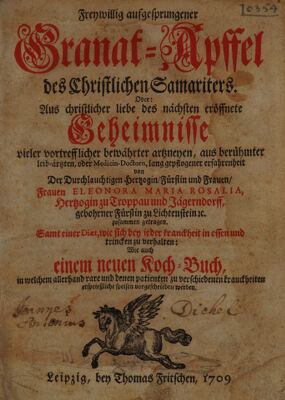 10354
Freywillig aufgesprungener
Granat-Apffel
des Christlichen Samariters.
Oder:
Aus christlicher liebe des nächsten eröffnete
Geheimnisse
vieler vortrefflicher bewährter artzneyen, aus berühmter
leib-ärtzten, oder Medicin-Doctorn, lang gepflogener erfahrenheit
von
Der Durchlauchtigen Hertzogin/Fürstin und Frauen/
Frauen ELEONORA MARIA ROSALIA,
Hertzogin zu Troppau und Jägerndorff,
gebohrner Fürstin zu Lichtenstein ꝛc.
zusammen getragen.
Samt einer Diæt, wie sich bey jeder kranckheit in essen und
trincken zu verhalten;
Wie auch
einem neuen Koch-Buch,
in welchem allerhand rare und denen patienten zu verschiedenen kranckheiten
ersprießliche speisen vorgeschrieben werden.
Antonius
Leipzig, bey Thomas Fritschen, 1709